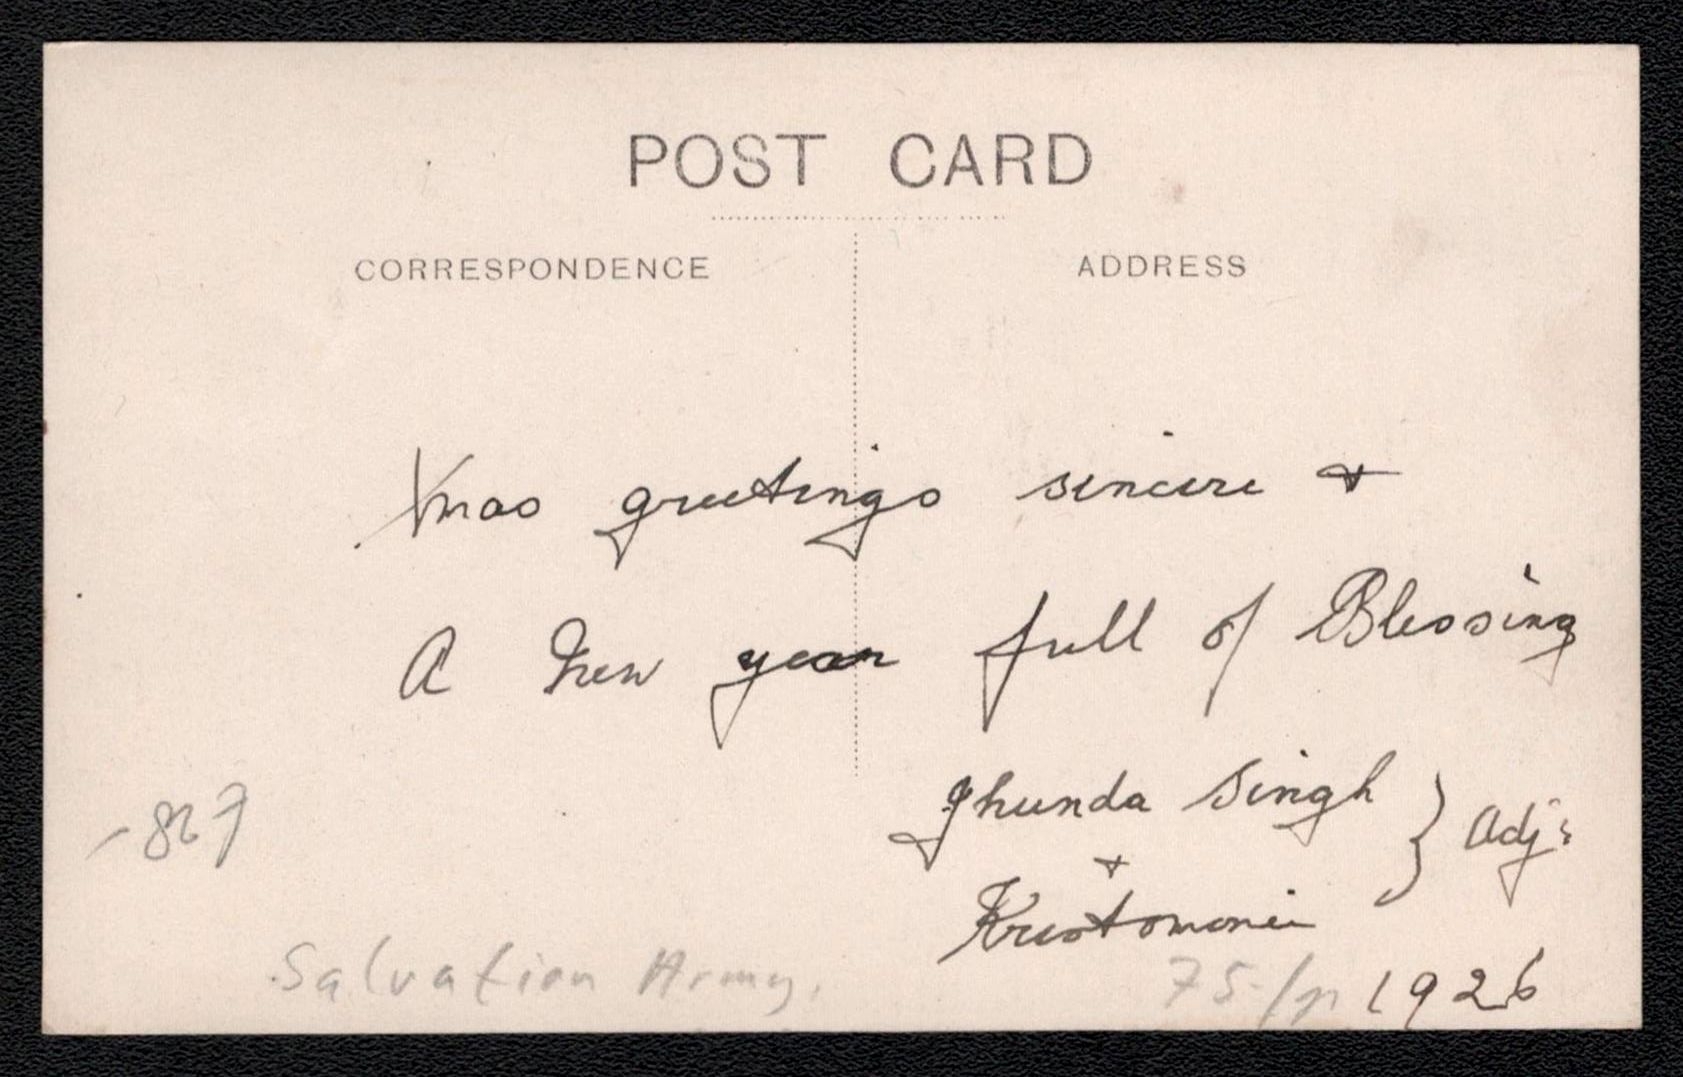 POST CARD
CORRESPONDENCE
ADDRESS
Xmas greetings sincere &
A New year full of Blessing
Jhunda Singh } Adj:
&
Kristomonie
-827
Salvation Army.
75/- 1926